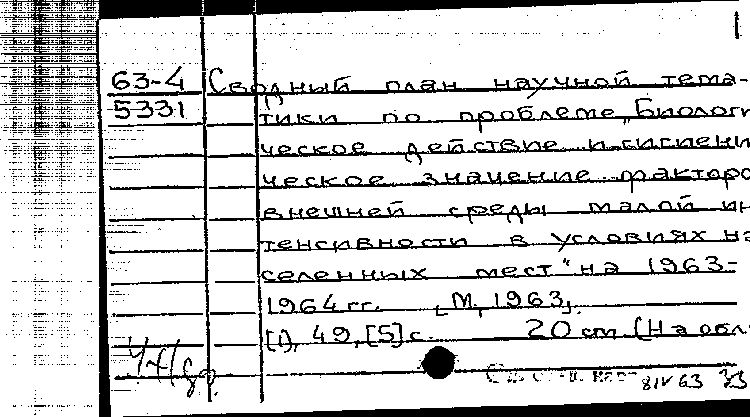 63-4 Сводный план научной тема-
5331 тики по проблеме „Биологи
ческое действие и гигиени
ческое значение факторо
внешней среды малой ин
тенсивности в условиях на
селенных мест" на 1963-
1964 гг. [М, 1963].
[1], 49, [5] с. 20 cm (На обл.
8IV 63